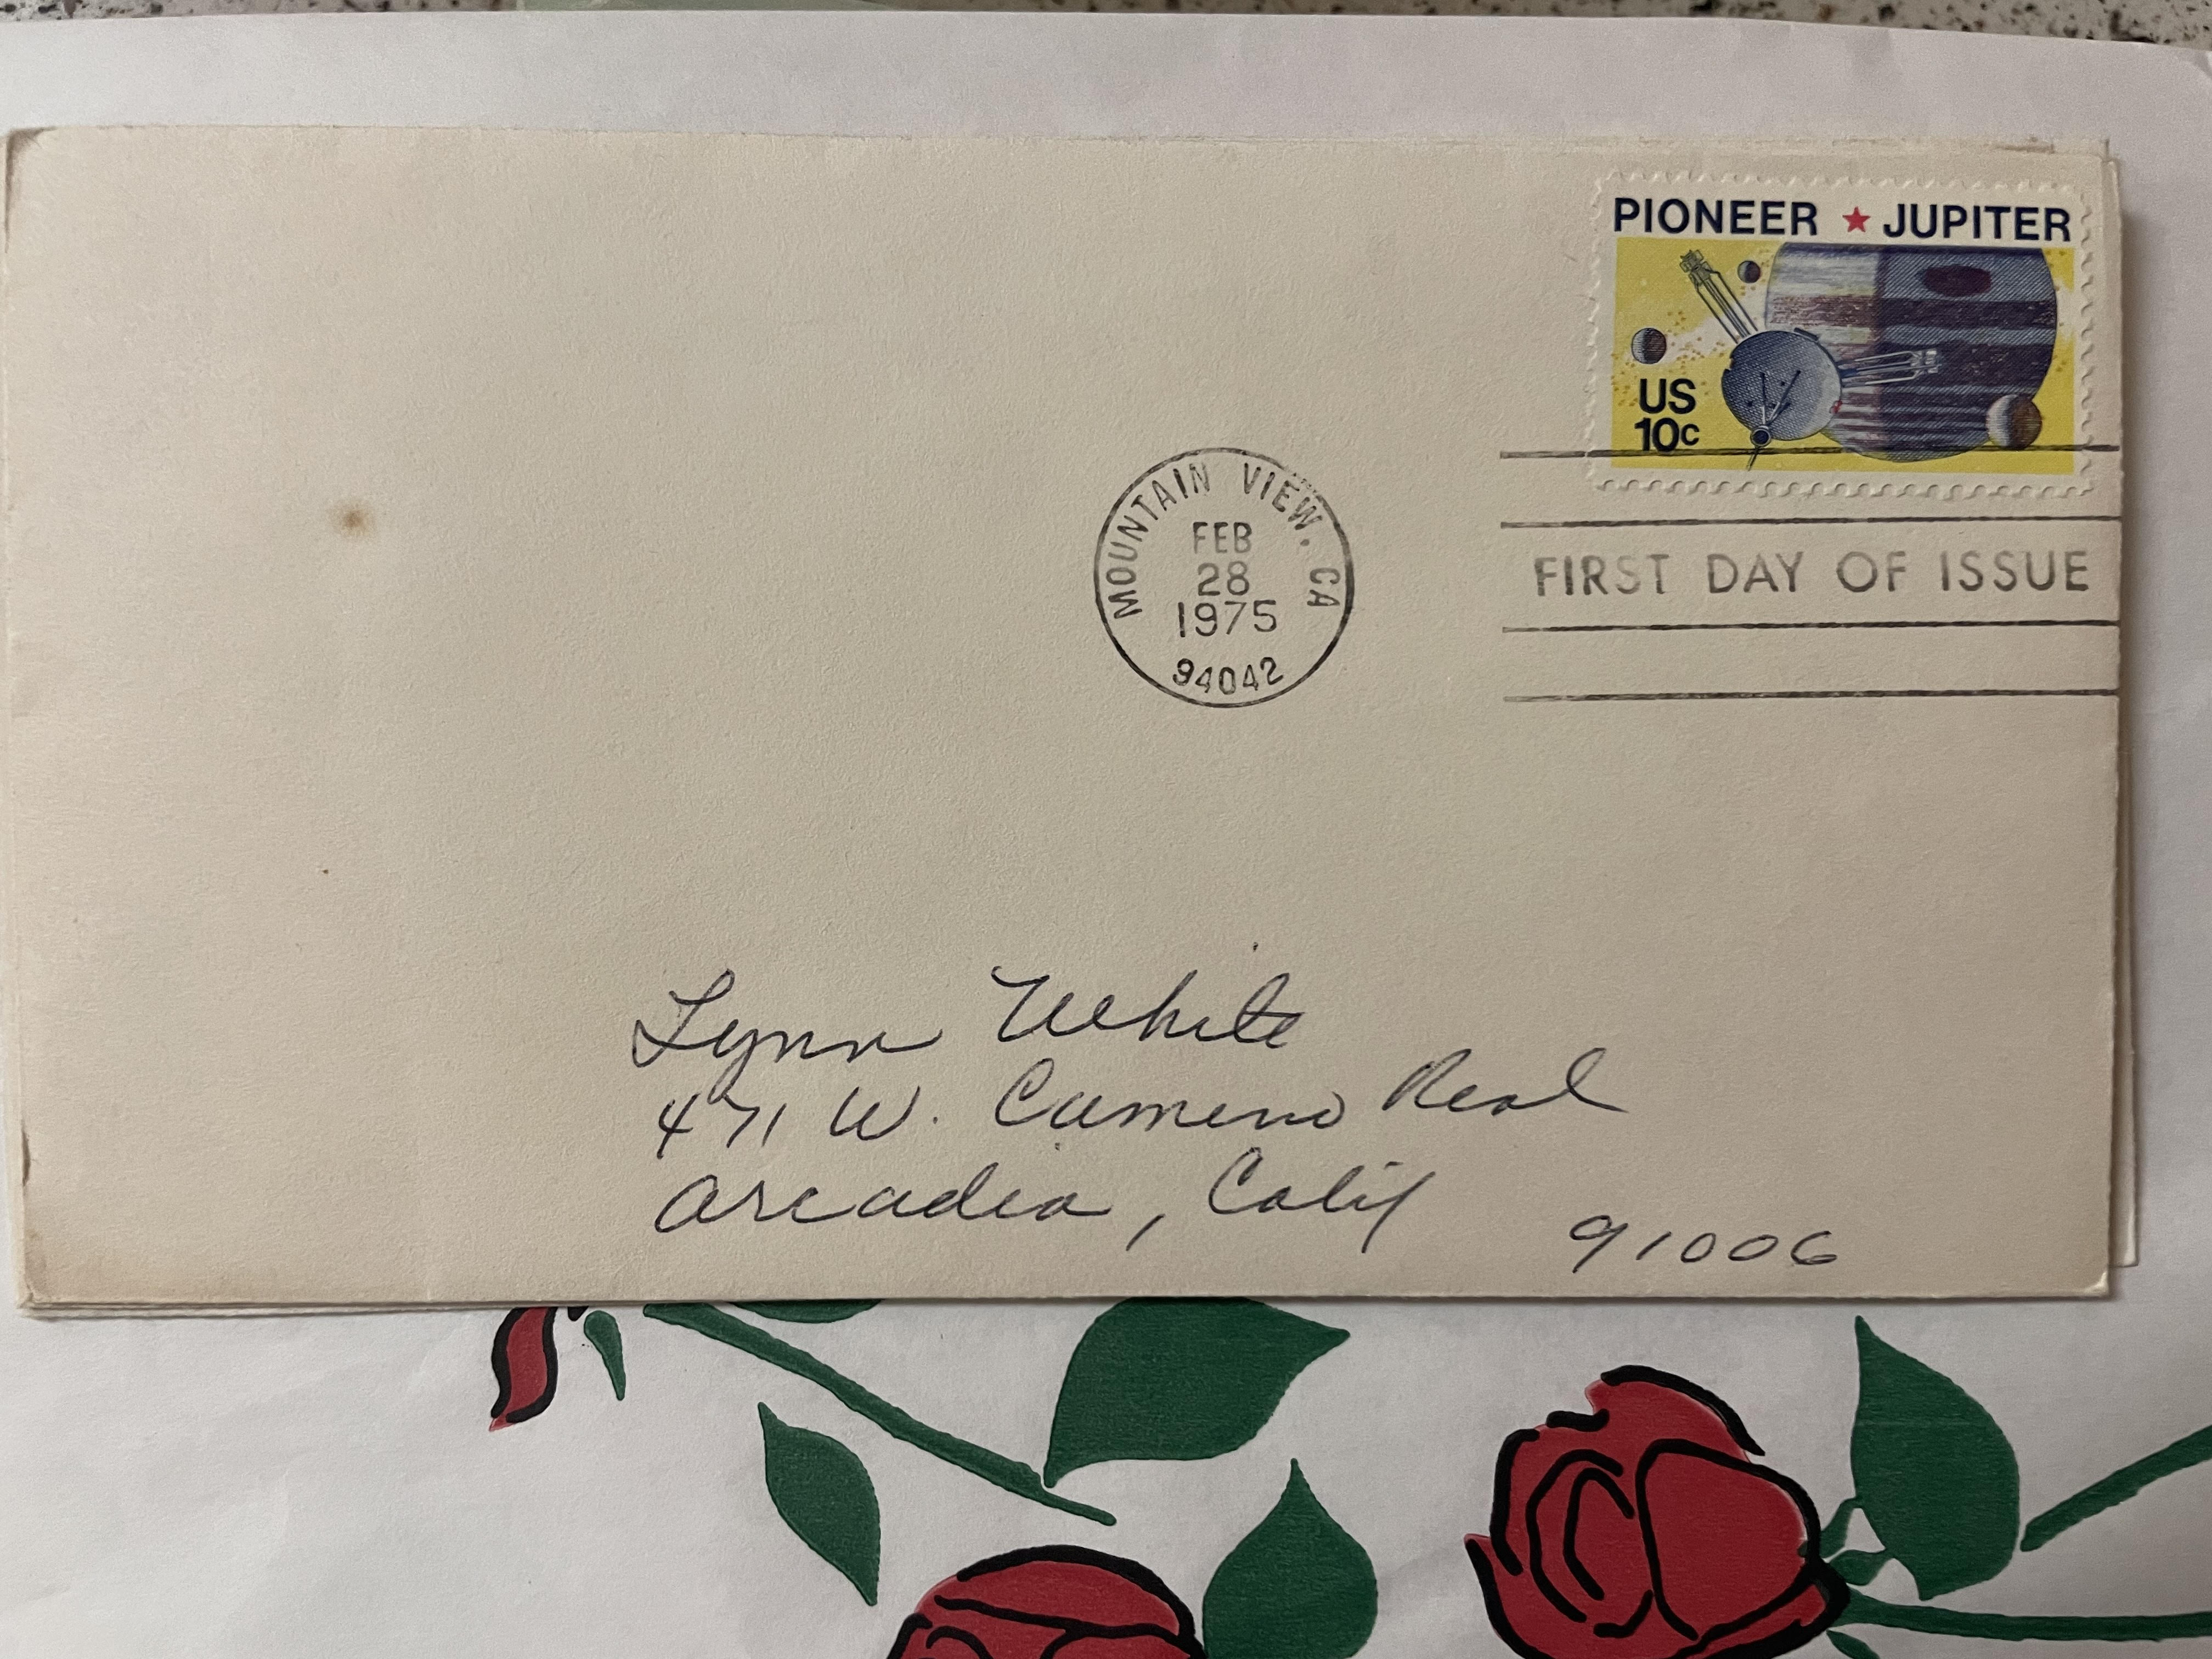 PIONEER ★ JUPITER
US
10c
MOUNTAIN VIEW, CA
FEB
28
1975
94042
FIRST DAY OF ISSUE
Lynn White
471 W. Cameno Real
Arcadia, Calif
91006